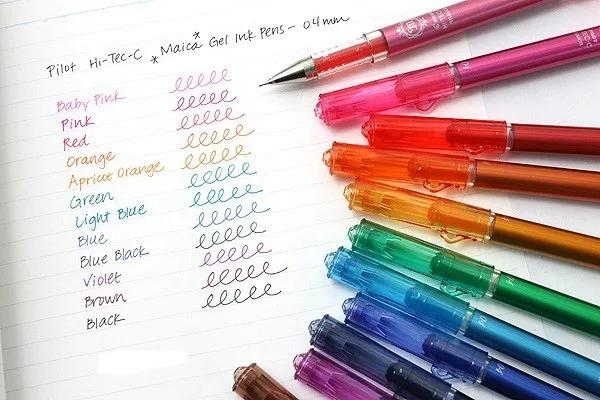 Pilot Hi-Tec-C *Maica* Gel Ink Pens - 04mm
Baby Pink
Pink
Red
Orange
Apricot Orange
Green
Light Blue
Blue
Blue Black
Violet
Brown
Black